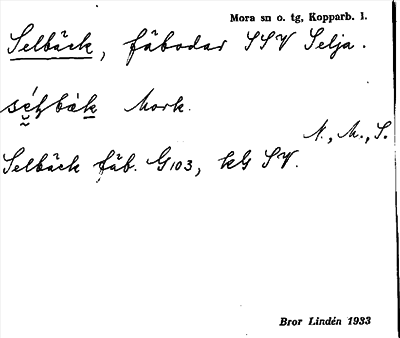 Mora sn o. tg, Kopparb. l.
Selbäck, fäbodar SSV Selja.
Mork.
N., M., S.
Selbäck fäb. G103, kG SV.
Bror Lindén 1933